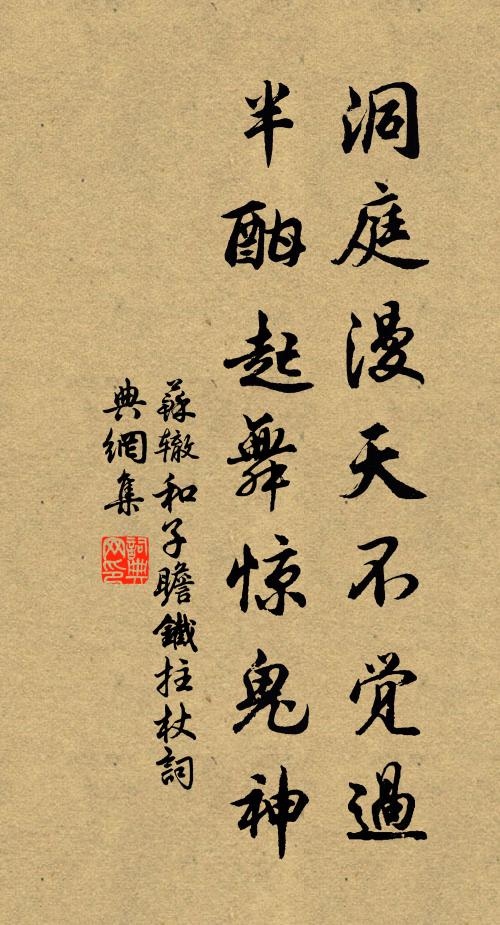 洞庭漫天不觉過
半酣起舞惊鬼神
蘇辙和子瞻鐵拄杖詞
典網集
詞典
网印